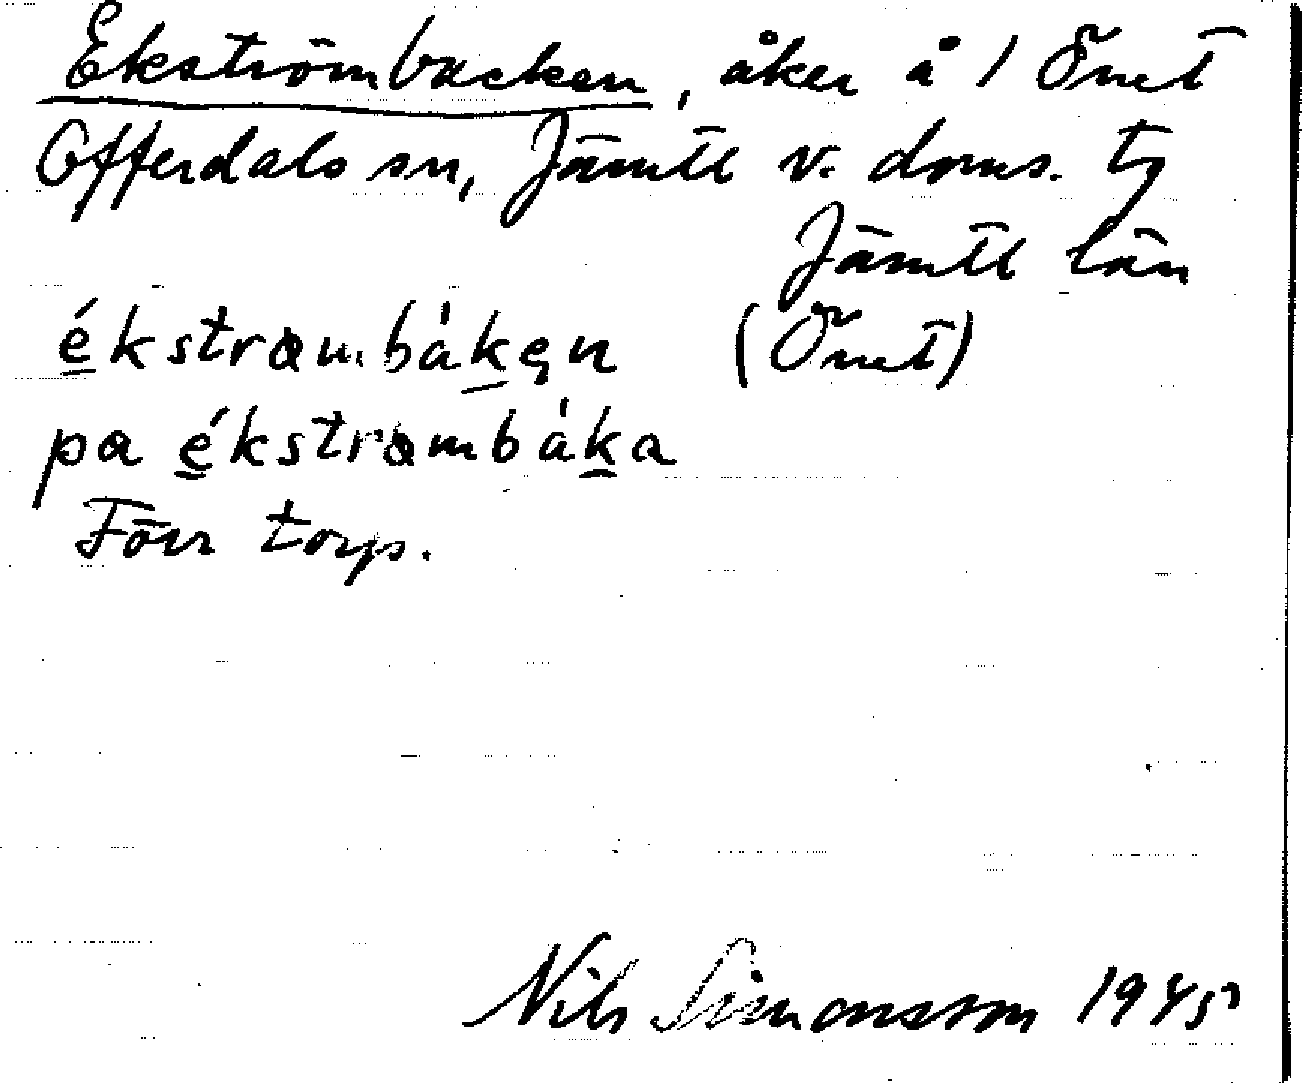 Ekströmbacken, åker å 1 Önet
Offerdals sn, Jämtl v. doms. tg
Jämtl län
ékstrɷmbák̲ęn (Önet)
pa é̲kstrɷmbák̲a
Förr torp.
Nils Simonsson 1945